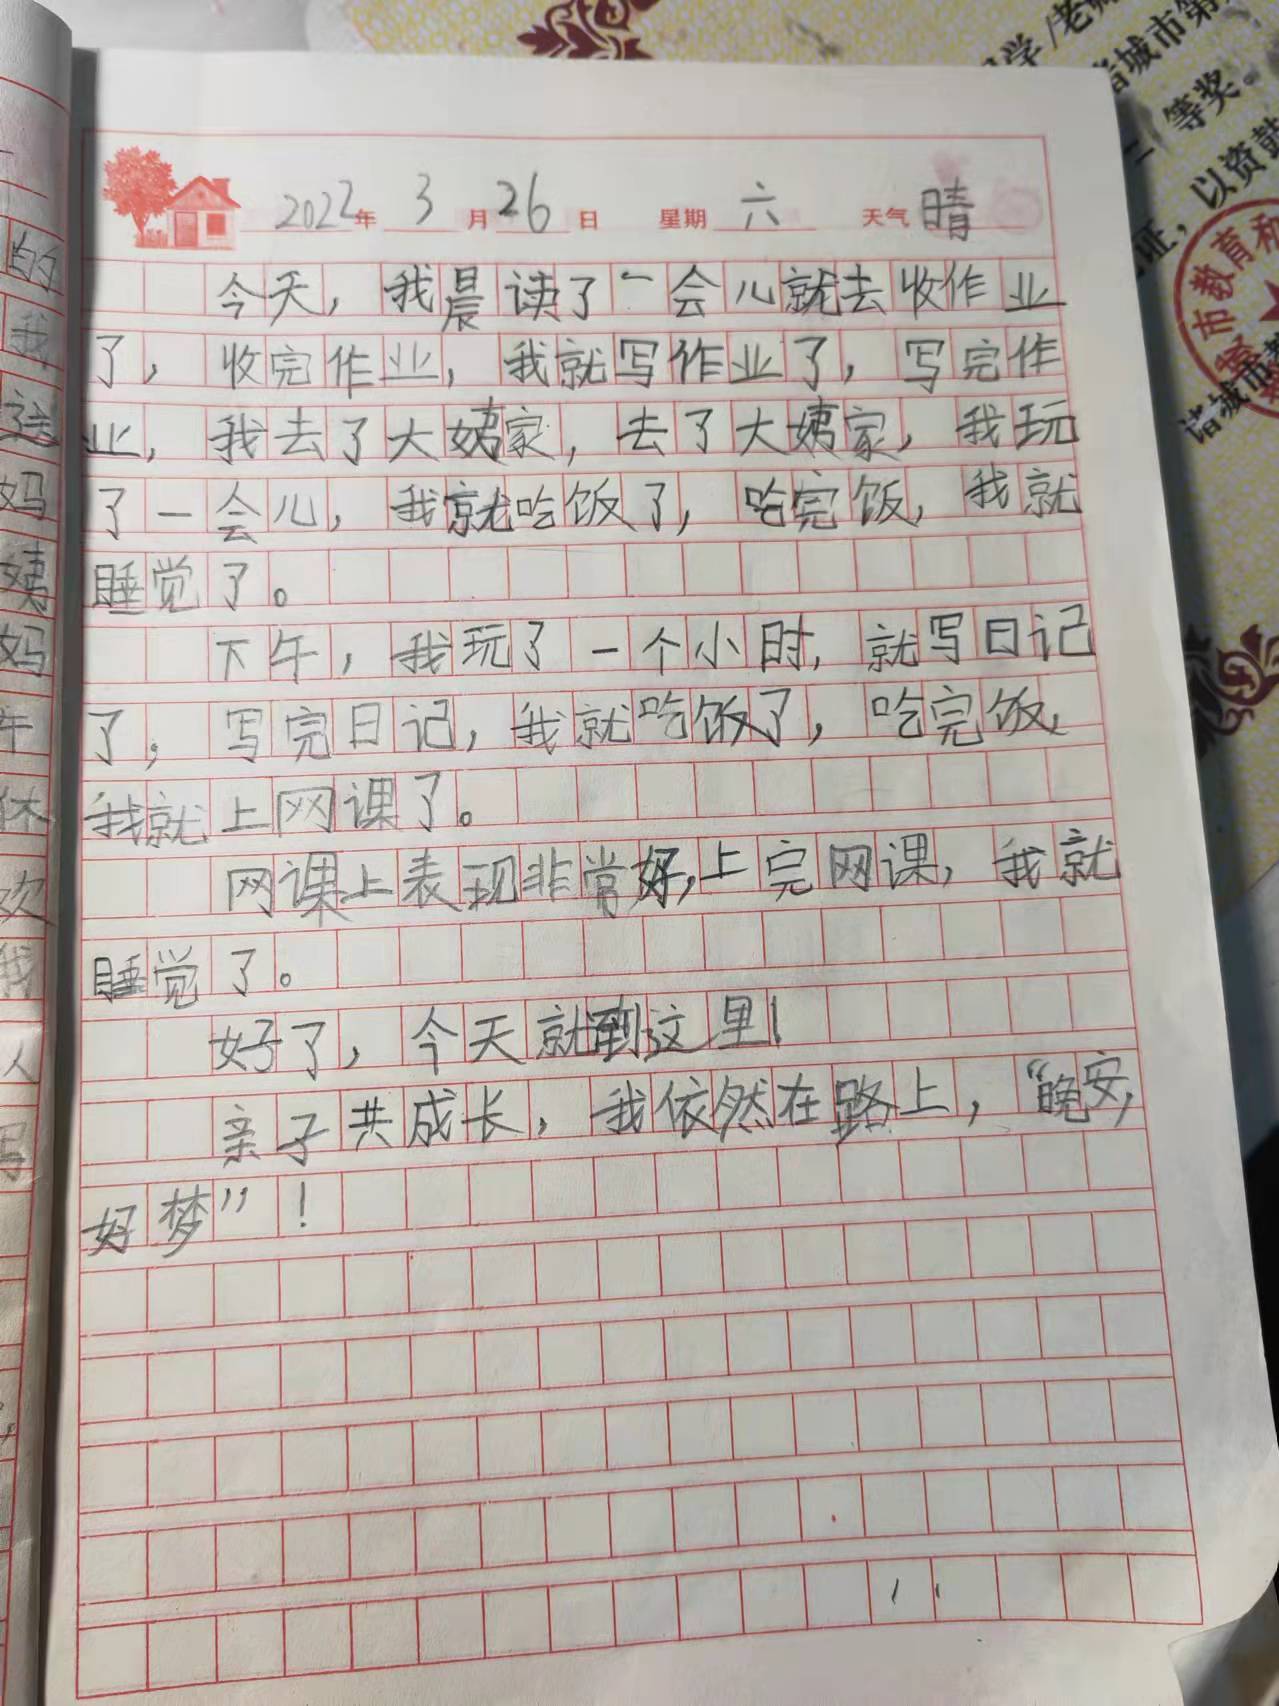 2022年 3月26日 星期六 天气晴
今天，我晨读了一会儿就去收作业
了，收完作业，我就写作业了，写完作
业，我去了大姨家，去了大姨家，我玩
了一会儿，我就吃饭了，吃完饭，我就
睡觉了。
下午，我玩了一个小时，就写日记
了，写完日记，我就吃饭了，吃完饭，
我就上网课了。
网课上表现非常好，上完网课，我就
睡觉了。
好了，今天就到这里！
亲子共成长，我依然在路上，“晚安，
好梦”！
的
我
这
妈
姨
妈
午
休
欢
我
人
学/老师
诸城市第
二等奖。
证，以资鼓
市教育和
诸城市教